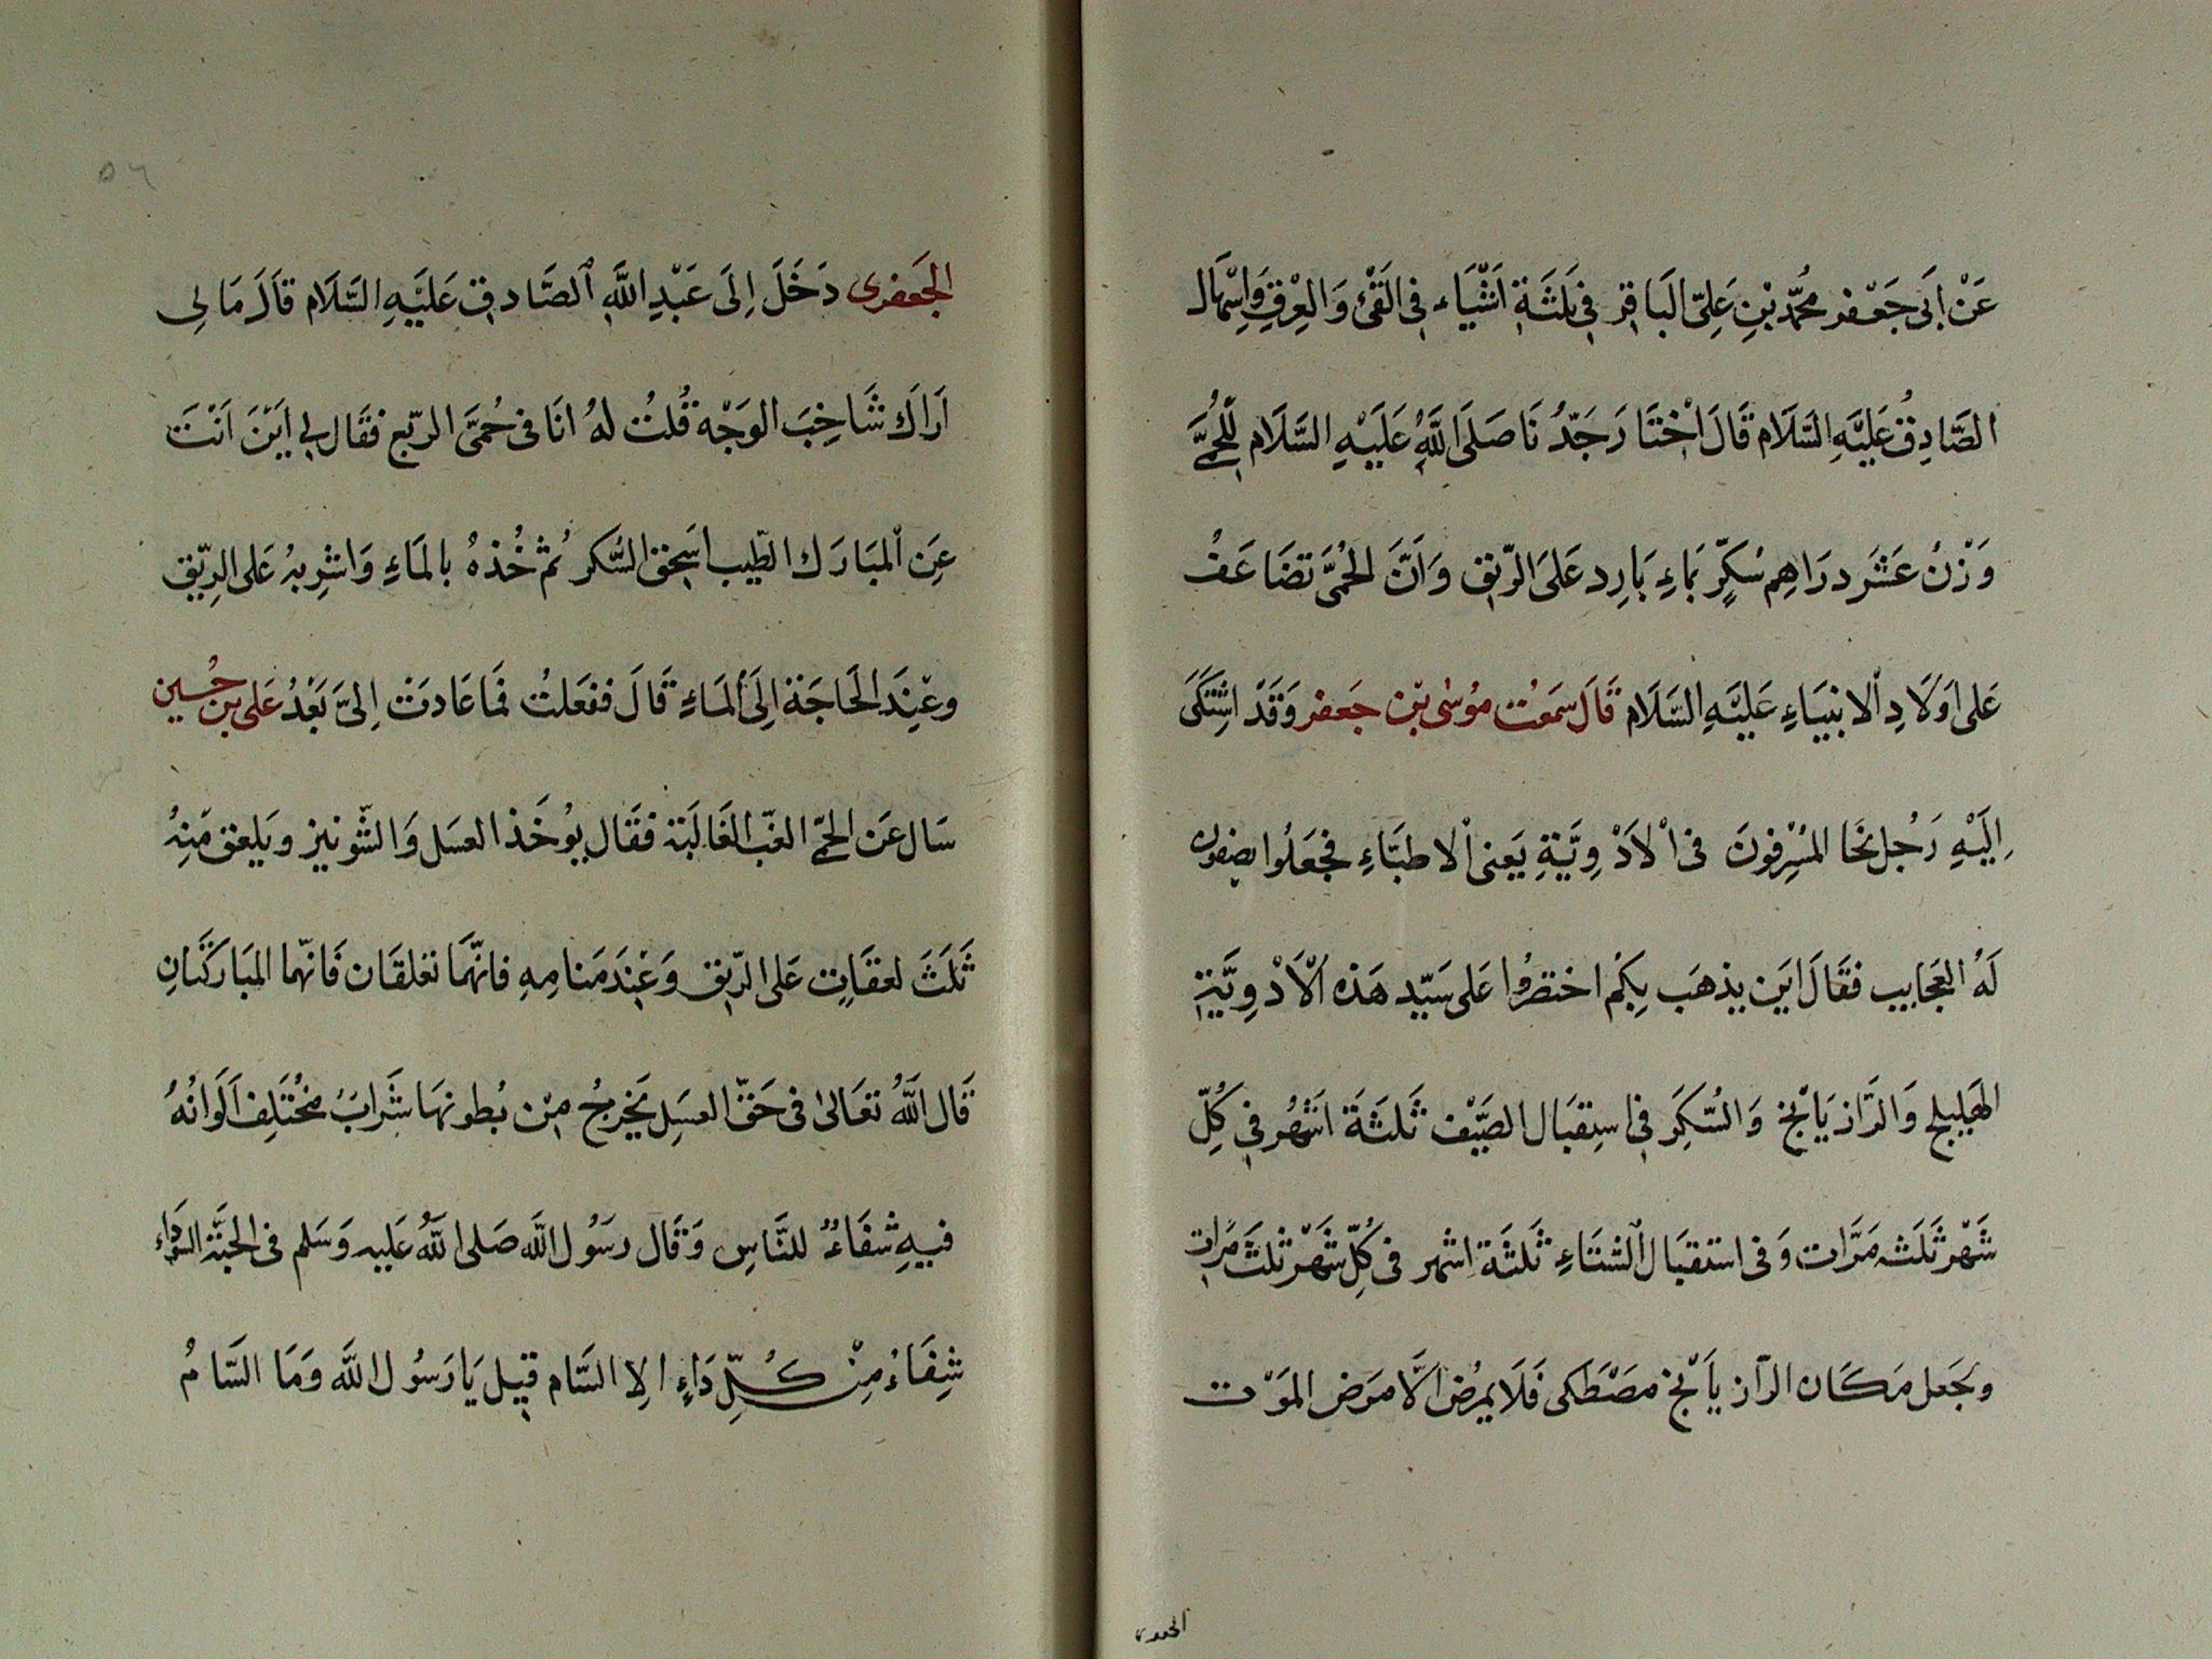 عَنْ اَبى جَعْفر مُحمّد بْنِ عَلِىّ البَاقِر فِى ثَلثَةِ اَشْيَاء فِى القَىْ وَالعِرْقِ وَاِسْهَال
الصَّادِقُ عَلَيْهِ السَّلَام قَالَ اخْتَارَ جَدُّنَا صَلَى اللَّهُ عَلَيْهِ السَّلَام لِلْحُمَّى
وَزْنُ عَشَر دَرَاهِم سُكَّرٍ بمَاءِ بَارِد عَلىَ الرّيِق وَاَنَّ الحُمَّى تضَاعَفُ
عَلى اَوْلَادِ الانبيَاءِ عَلَيْهِ السَّلَام قَالَ سَمعْت مُوسٰى بْن جَعفر وَقَدْ اشْتَكَى
اِلَيْهِ رَجُل نَحَا المُسْرِفونَ فى الاَدْوِيَّةِ يَعنى الاطبَّاءِ فجَعَلُوا يصفون
لَهُ العَجَايِب فقَالَ ايَن يذهَب بِكِمُ اختصرُوا عَلى سَيّد هَذه الْاَدْوِيَّةِ
الهَلِيلج وَالرَّازيَانج وَالسُّكَر فِى اسِتقبَال الصَّيْف ثَلثَةَ اشْهُر فِى كُلِّ
شَهْر ثَلَث مَرَّات وَفى استقبَال الْشتَاءِ ثَلثَة اشهر فى كلِّ شَهْر ثلثَ مَرات
ويجَعل مَكَان الرّازيَانج مصَطَكى فَلَا يمرُض الَّا مرَض الموَت
الجعفرى
الجَعفرى دَخَلَ اِلَى عَبْدِ اللَّهِ الصَّادِق عَلَيْهِ السَّلَام قاَلَ مَا لِى
اَرَاكَ شَاحِبَ الوَجْه قُلتُ لهُ انَا فى حُمَّى الربّع فقَال لِى ايَنَ اَنْتَ
عَنِ المبَارَك الطّيب اسَحِق السُّكر ثُم خُذهُ بالمَاءِ وَاشِربهُ عَلى الرِّيِق
وعْنِدَ الحَاجَة اِلَى المَاءِ قَالَ ففعَلتُ فمَا عَادتَ اِلىَّ بَعْدُ عَلى بن حُسين
سَال عَن الحمّى الغبّ الغَالَبَة فقَال يوُخَذ العسَل وَالشّونيز ويَلعق مَنِهُ
ثَلَثَ لعقَاتٍ عَلى الرّيق وَعْنِدَ مَنامِهِ فانّهمَا تعلقَان فَانّهما المبَاركَتانِ
قَال اللَّهُ تعَالىٰ فى حَقّ العسَلِ يَخرجُ مِنْ بُطونهَا شَرابٌ مُختَلِف اَلَوانُهُ
فيِهِ شفَاءٌ للنَّاسِ وَقَال رسَوُل اللَّه صَلى اللَّهُ عَليه وَسَلم فى الحَبَّة السَّودَاء
شِفَاءُ مِنْ كُلِّ دَاءٍ الِا السَّام قيِل يَا رَسُول اللَّه وَمَا السَّامُ